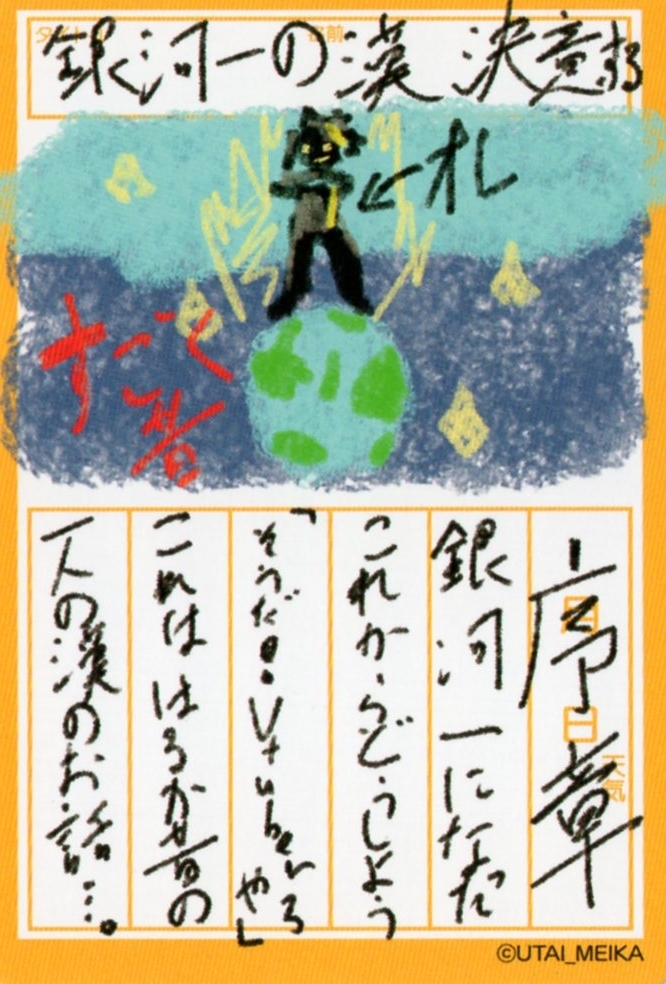 銀河一の漢 決意する
←札
すごい
者
序章
銀河一になった
これからどうしよう
「そうだ!Vtuberしろや」
これははるか昔の
一人の漢のお話…。
©UTAI_MEIKA